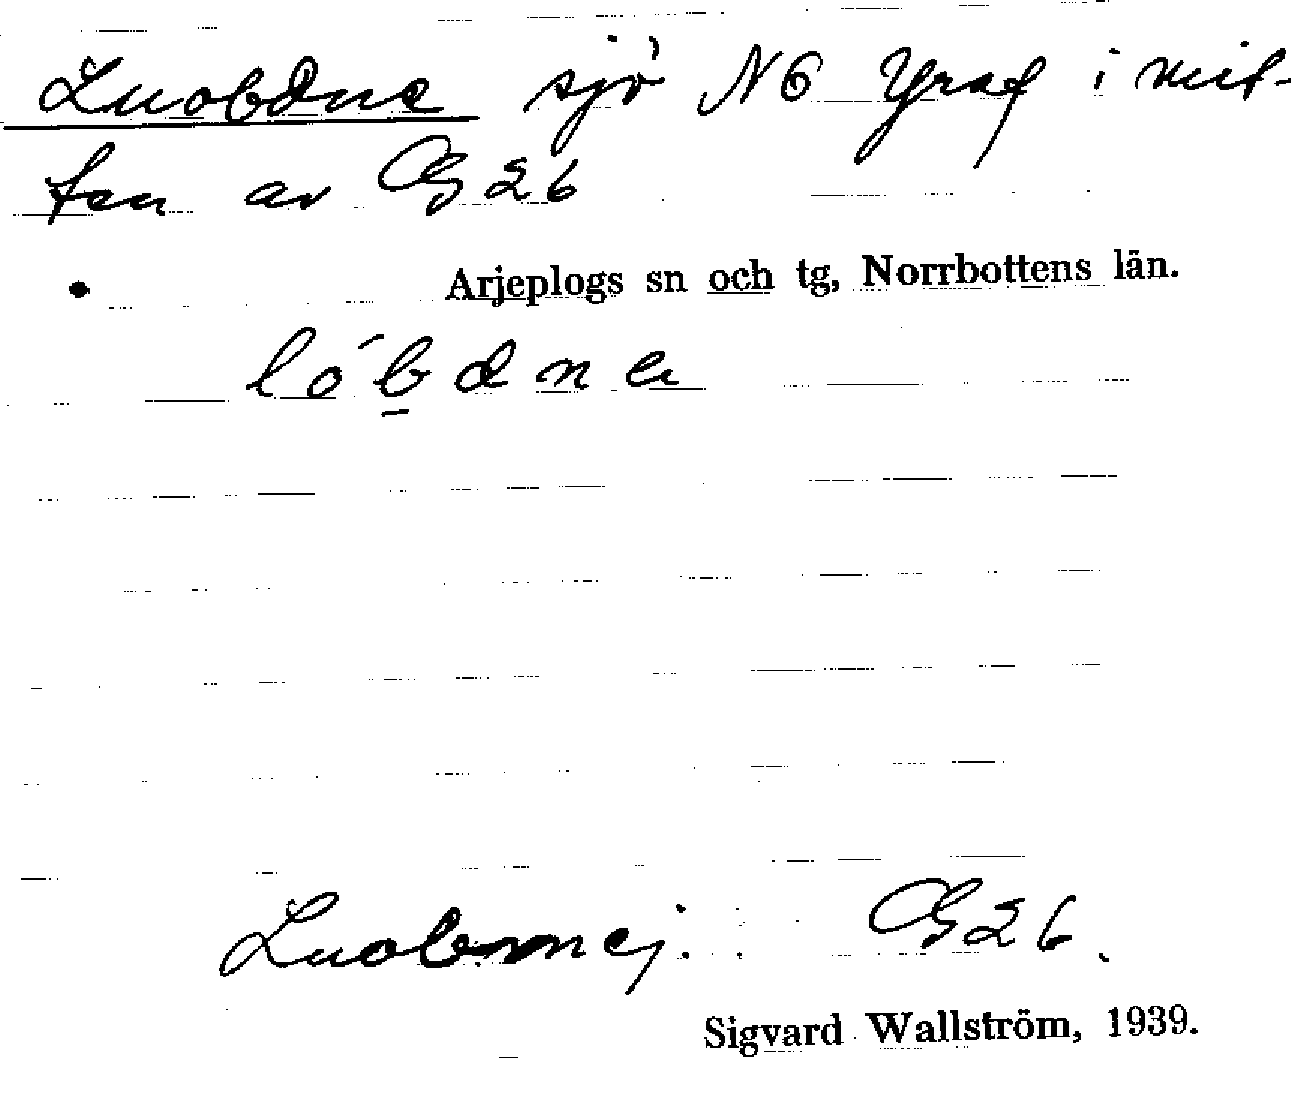 Luobdne sjö NÖ Yraf i mit-
ten av G 26
Arjeplogs sn och tg, Norrbottens län.
lo´bdna
Luobmej. G26.
Sigvard Wallström, 1939.